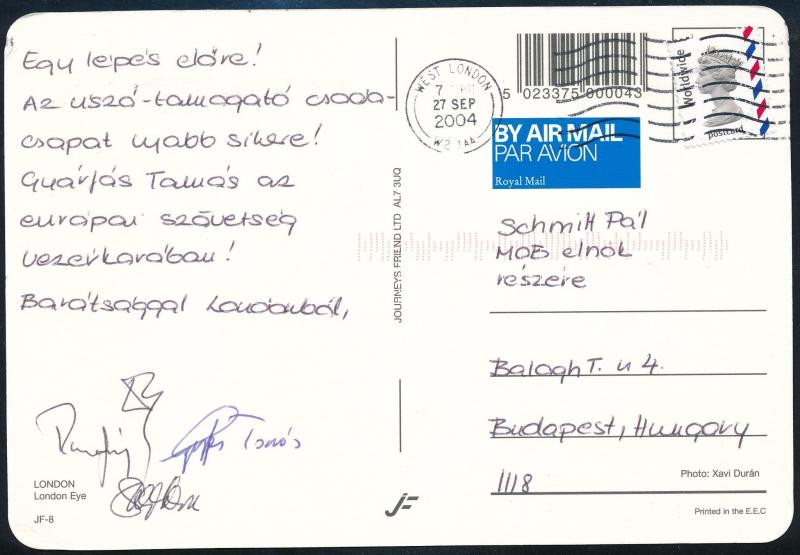 Egy lépés előre!
Az úszó-támogató csoda-
csapat ujabb sikere!
Gyárfás Tamás az
európai szövetség
vezérkarában!
Barátsággal Londonból,
Tamás
LONDON
London Eye
JF-8
JOURNEYS FRIEND LTD AL7 3UQ
WEST LONDON
27 SEP
2004
W2 1AA
5 023375 000043
BY AIR MAIL
PAR AVION
Royal Mail
Worldwide
postcard
Schmitt Pál
MOB elnök
részére
Balogh T. u 4.
Budapest, Hungary
1118
Photo: Xavi Durán
Printed in the E.E.C